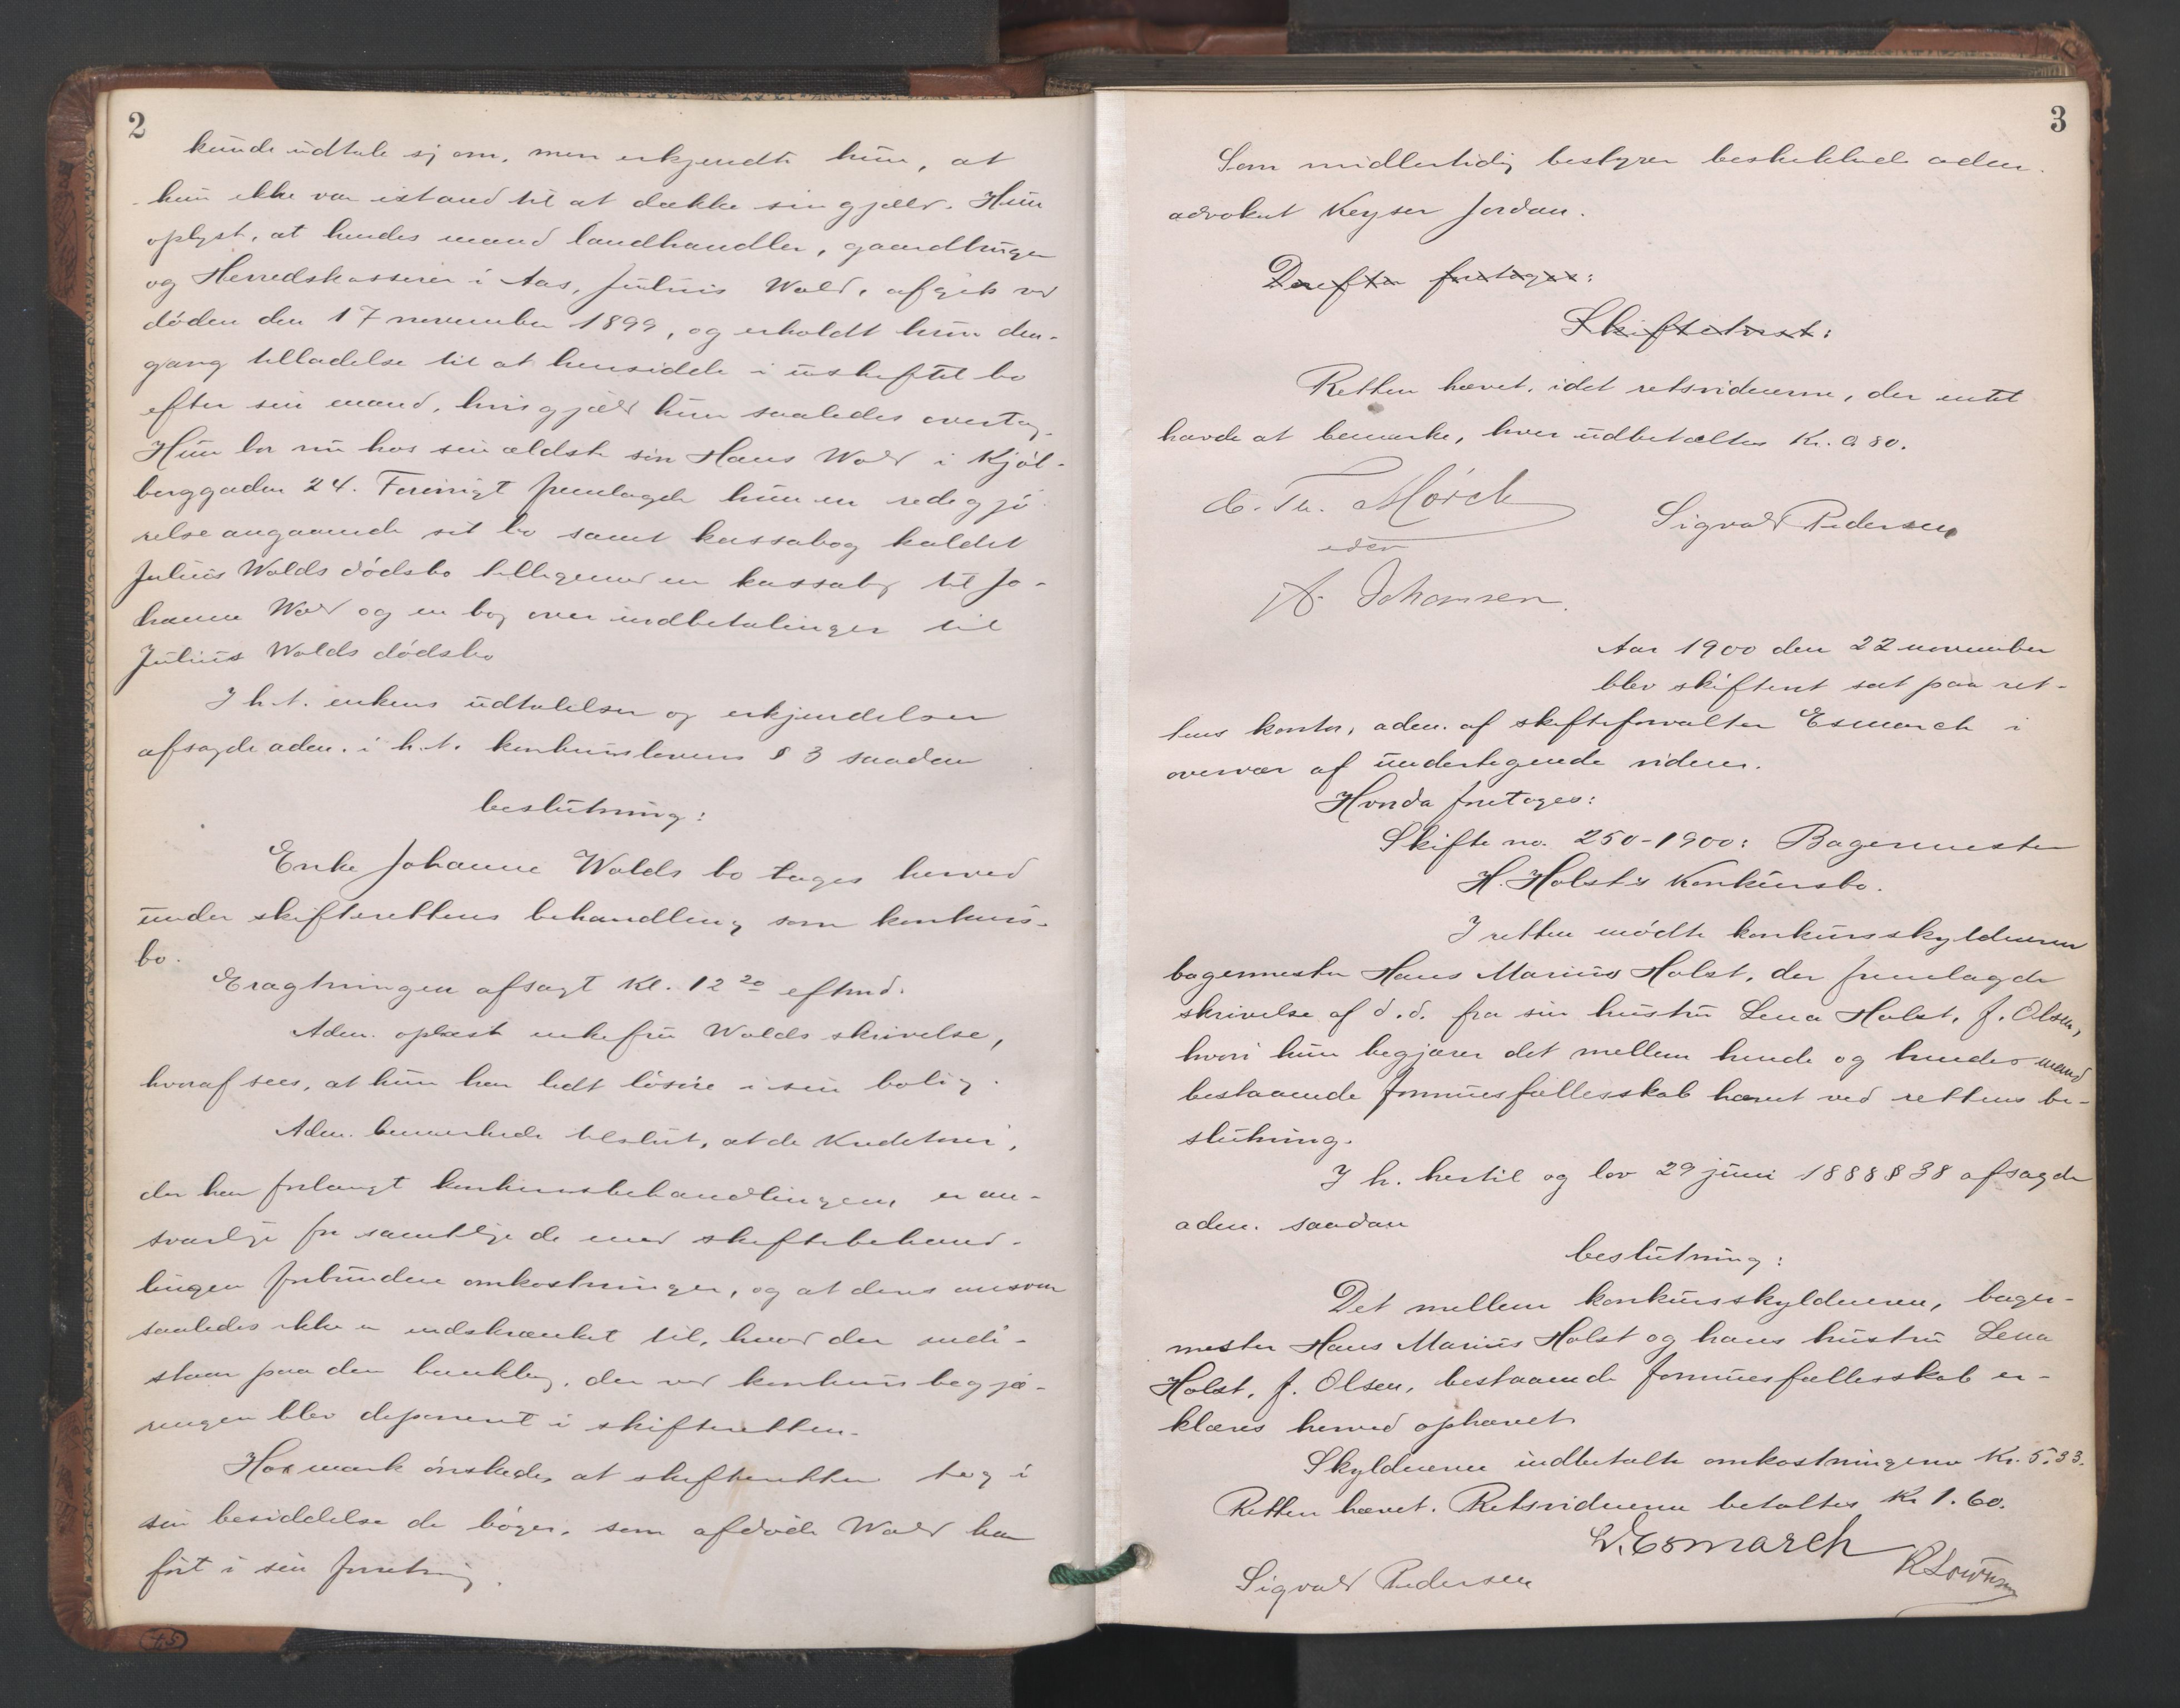 2
kunde udtale sj om, men erkjendte hun, at
hun ikke var istand til at dække sin gjæld. Hun
oplyst, at hendes mand landhandler, gaardbruger
og Herredskasserer i Aas, Julius Wold, afgik ved
døden den 17 november 1899, og erholdt hun den-
gang tilladelse til at hensidde i uskiftet bo
efter sin mand, hvis gjæld hun saaledes overtog.
Hun bor nu hos sin ældste søn Hans Wold i Kjøl-
berggaden 24. Forøvrigt fremlagde hun en redegjø-
relse angaaende sit bo samt kassabog kaldet
Julius Wolds dødsbo tilligemed en kassabog til Jo-
hanne Wold og en bog over indbetalinger til
Julius Wolds dødsbo
I h.t. enkens udtalelser og erkjendelser
afsagde adm. i h.t. konkurslovens § 3 saadan
beslutning:
Enke Johanne Wolds bo tages herved
under skifterettens behandling som konkurs-
bo.
Eragtningen afsagt Kl. 12 20 eftmd.
Adm. oplæste enkefru Wolds skrivelse,
hvoraf sees, at hun har lidt løsøre i sin bolig.
Adm. bemærkede tilslut, at de Kreditorer,
der har forlangt konkursbehandlingen, er an-
svarlige for samtlige de med skiftebehand-
lingen forbundne omkostninger, og at deres ansvar
saaledes ikke er indskrænket til, hvad der inde-
staar paa den bankbog, der ved konkursbegjæ-
ringen blev deponeret i skifteretten.
Hoxmark ønskede, at skifteretten tog i
sin besiddelse de bøger, som afdøde Wold har
ført i sin forretning.
3
Som midlertidig bestyrer beskikkede adm.
advokat Keyser Jordan.
Derefter foretages:
Skifteteurst:
Retten hævet, idet retsvidnerne, der intet
havde at bemærke, hver udbetaltes Kr. 0 80.
C. Th. Mörch
eden
Sigvald Pedersen
A. Johansen.
Aar 1900 den 22 november
blev skifteret sat paa ret-
tens kontor, adm. af skifteforvalter Esmarch i
overvær af undertegnede vidner.
Hvorda foretages:
Skifte no. 250-1900: Bagermester
H. Holst's Konkursbo.
I retten mødte konkursskyldneren
bagermester Hans Marius Holst, der fremlagde
skrivelse af d.d. fra sin hustru Lena Holst, f. Olsen,
hvori hun begjærer det mellem hende og hendes mand
bestaaende formuesfællesskab hævet ved rettens be-
slutning.
I h. hertil og lov 29 juni 1888 § 38 afsagde
adm. saadan
beslutning:
Det mellem konkursskyldneren, bager-
mester Hans Marius Holst og hans hustru Lena
Holst, f. Olsen, bestaaende formuesfællesskab er-
klæres herved ophævet.
Skyldneren indbetalte omkostningerne Kr. 5.33.
Retten hævet. Retsvidnerne betaltes Kr 1.60.
L. Esmarch
Sigvald Pedersen